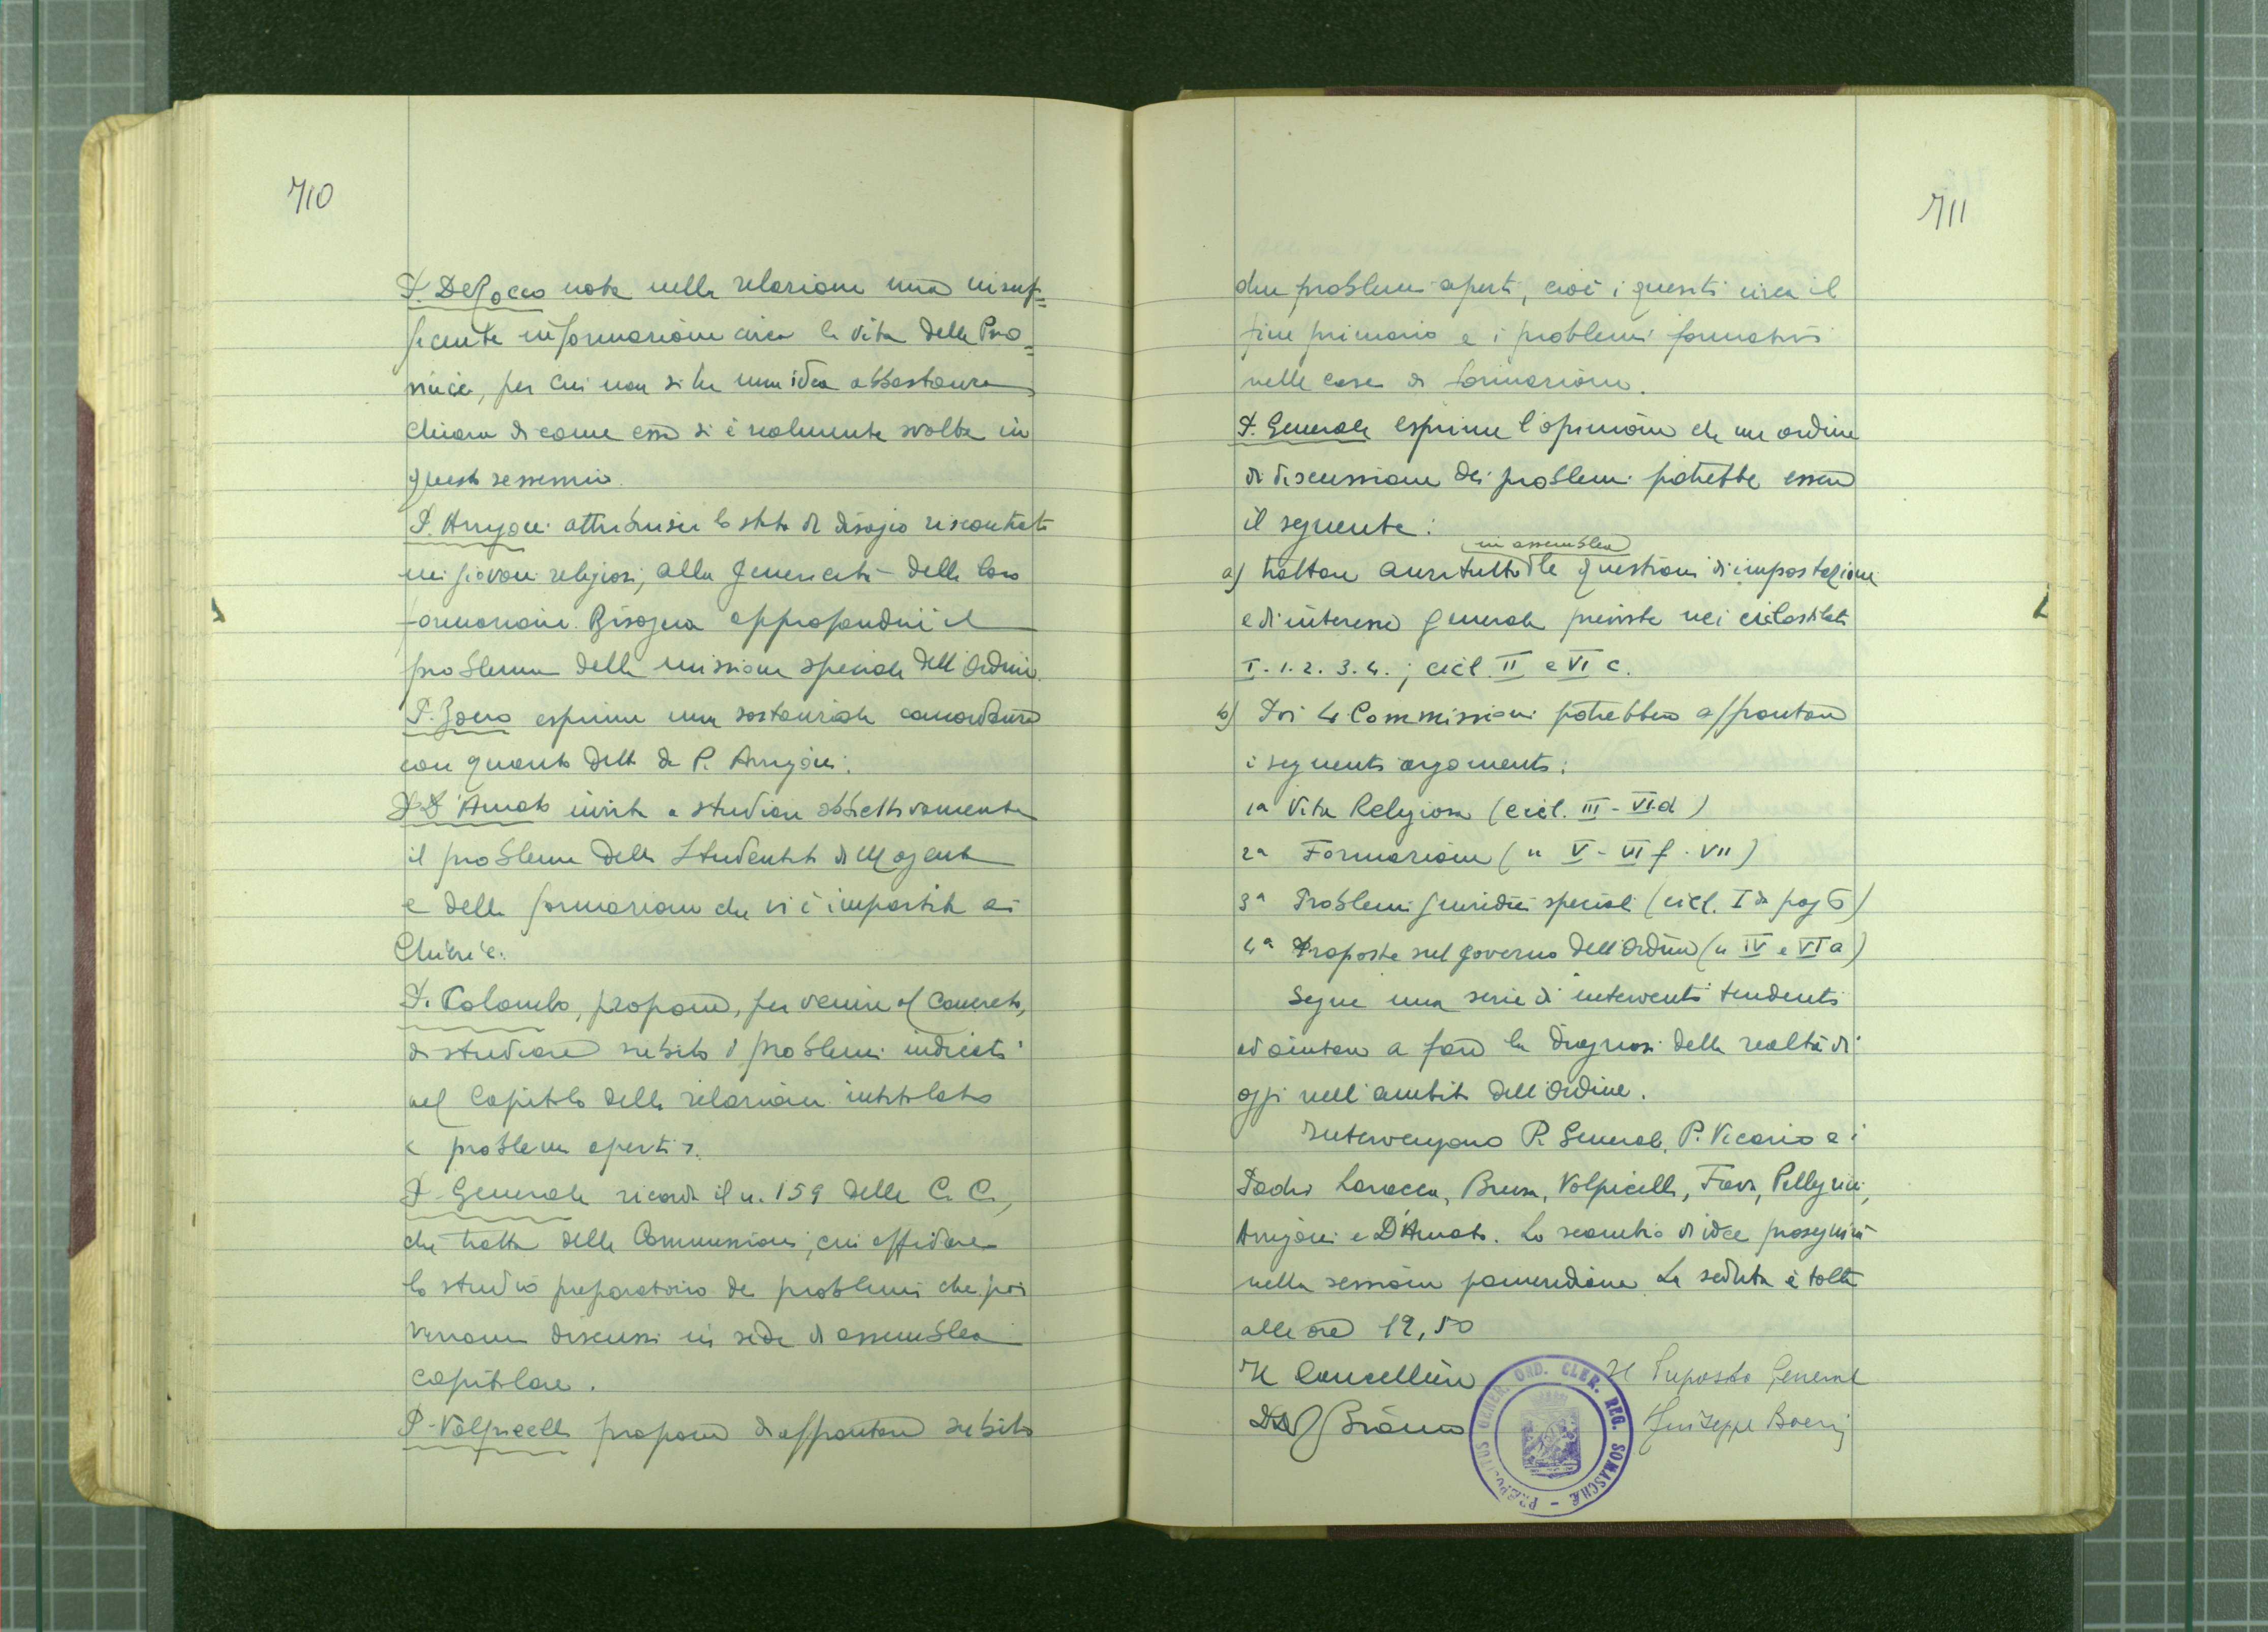 710
P. De Rocco nota nella relazione una insuf=
ficiente informazione circa la vita della Pro=
vincia, per cui non si ha una idea abbastanza
chiara di come essa si è realmente svolta in
questo sessennio.
P. Arrigoni attribuisce lo stato di disagio riscontrato
nei giovani religiosi, alla genericità della loro
formazione. Bisogna approfondire il
problema della missione speciale dell'Ordine.
P. esprime una sostanziale concordanza
con quanto detto da P. Arrigoni.
P. D'Amato invita a studiare obbiettivamente
il problema dello Studentato di Magenta
e della formazione che vi è impartita ai
Chierici.
P. Colombo, propone, per venire al concreto,
di studiare subito i problemi indicati
nel Capitolo della relazione intitolato
« problemi aperti ».
P. Generale ricorda il n. 159 delle C. C.,
che tratta delle Commissioni, cui affidare
lo studio preparatorio dei problemi che poi
verranno discussi in sede di assemblea
capitolare.
P. Volpicelli propone di affrontare subito
711
due problemi aperti, cioè i quesiti circa il
fine primario e i problemi formativi
nelle case di formazione.
P. Generale esprime l'opinione che un ordine
di discussione dei problemi potrebbe essere
il seguente:
in assemblea
a) trattare anzitutto le questioni di impostazione
e di interesse generale previste nei ciclostilati
I. 1. 2. 3. 4. ; cicl. II e VI c.
b) Poi 4 Commissioni potrebbero affrontare
i seguenti argomenti:
1a Vita Religiosa (cicl. III - VI d)
2a Formazione (" V - VI f - VII)
3a Problemi giuridici speciali (cicl. I da pag 6)
4a Proposte sul governo dell'Ordine (" IV e VI a)
Segue una serie di interventi tendenti
ad aiutare a fare la diagnosi della realtà di
oggi nell'ambito dell'Ordine.
Intervengono P. Generale, P. Vicario e i
Padri Laracca, Brusa, Volpicelli, Fava, Pellegrini,
Arrigoni e D'Amato. Lo scambio di idee proseguirà
nella sessione pomeridiana. La seduta è tolta
alle ore 12,50
Il Cancelliere Il Preposito Generale
Bianco Giuseppe Boeris
PRÆPOSITUS GENER. ORD. CLER. REG. SOMASCHÆ